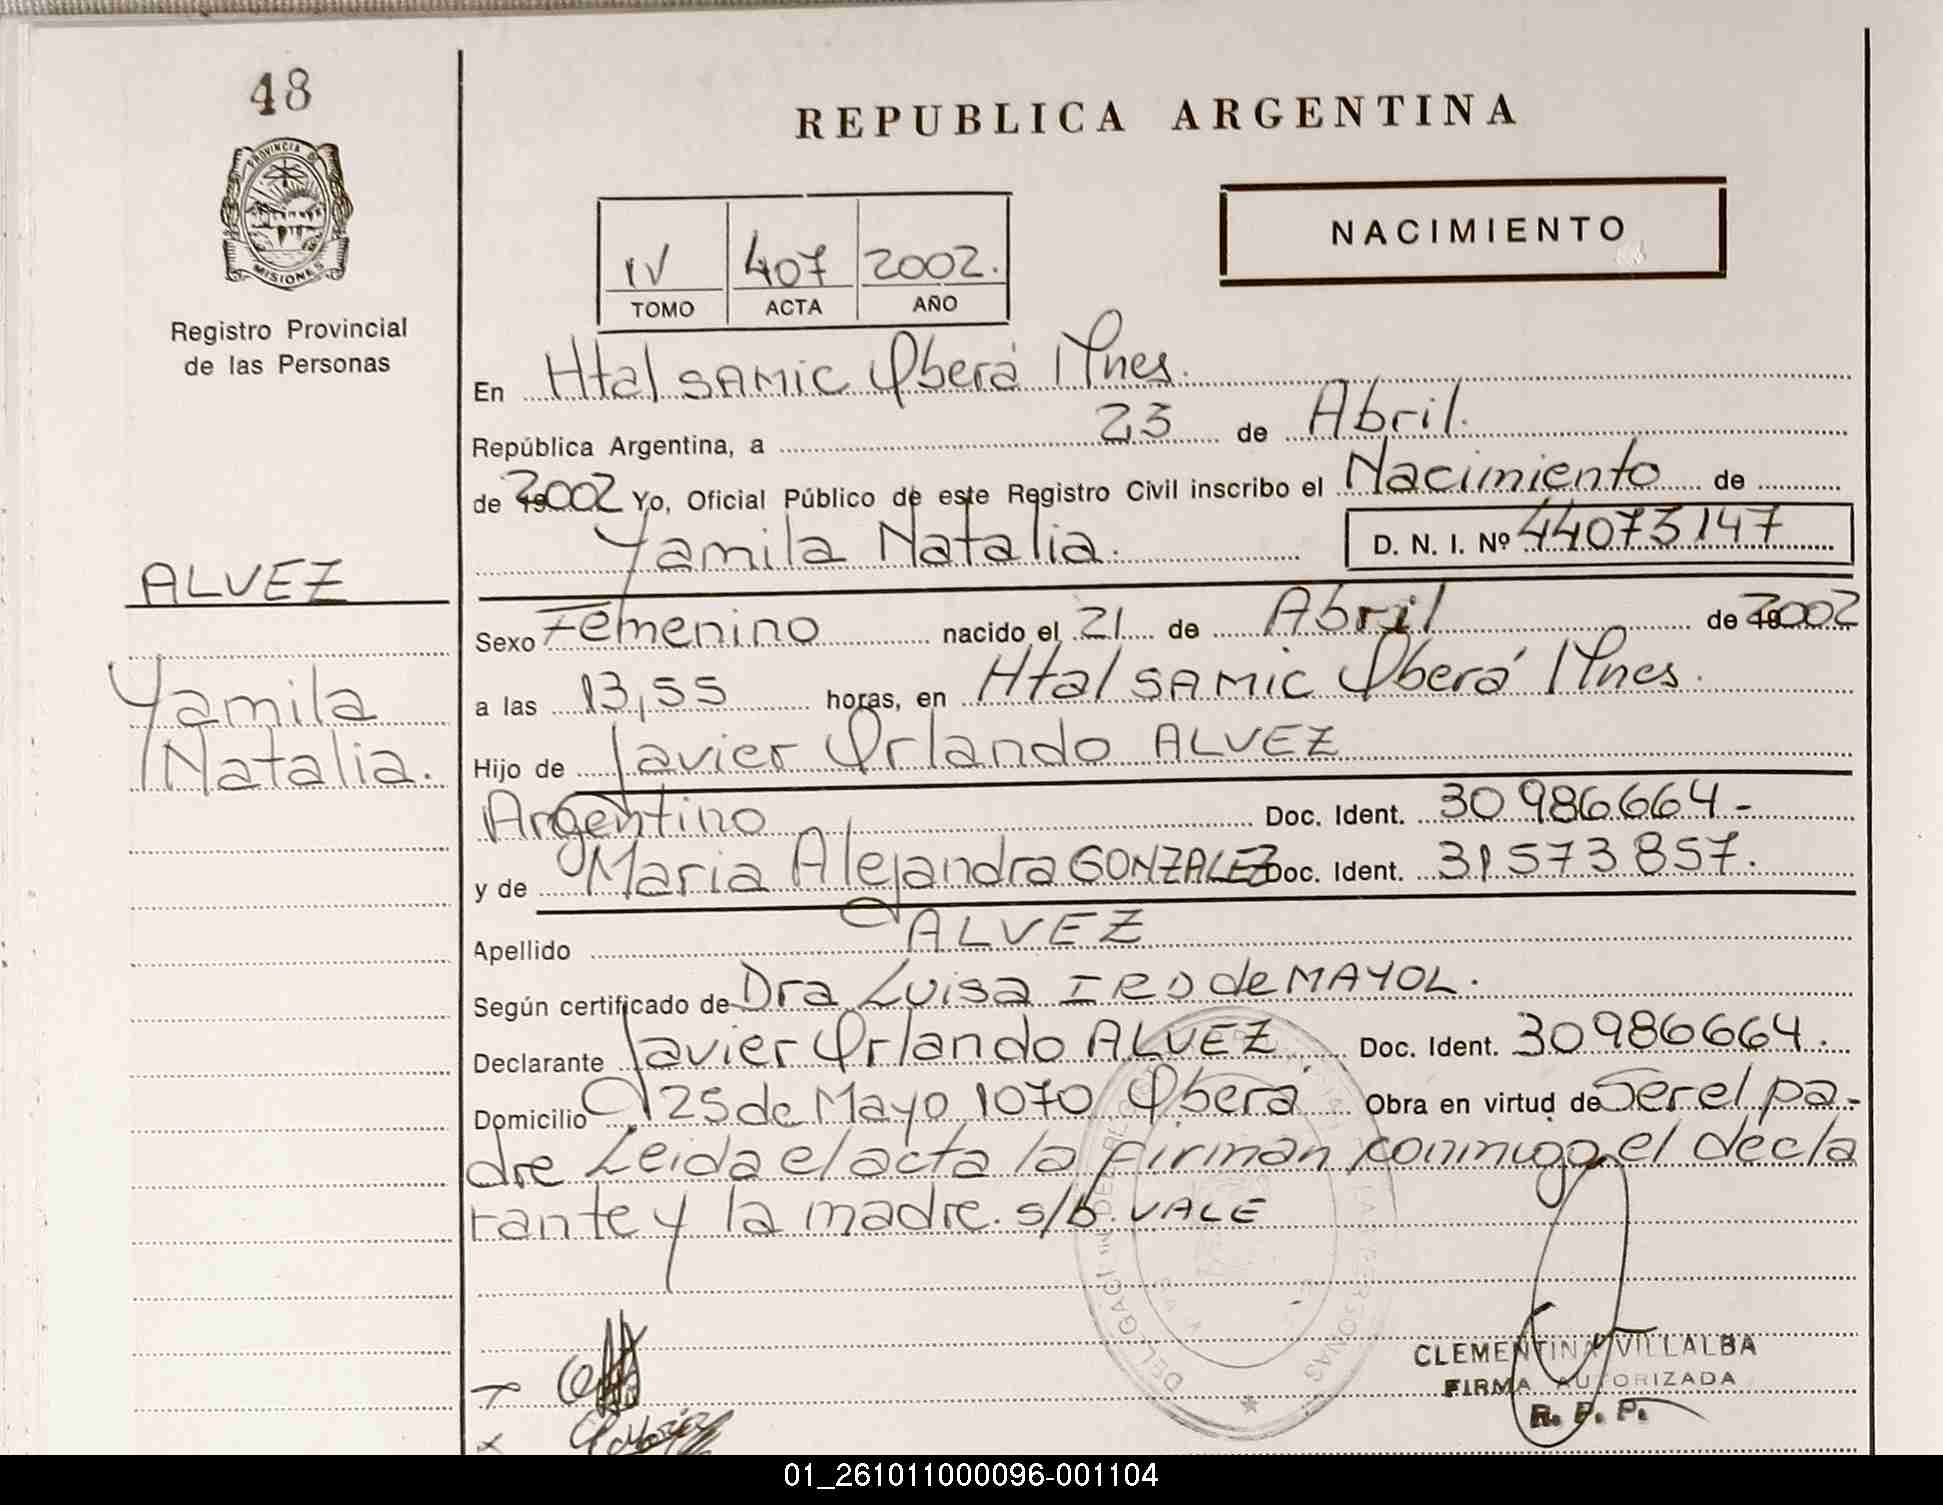 48
PROVINCIA DE
MISIONES
Registro Provincial
de las Personas
ALVEZ
Yamila
Natalia.
REPUBLICA ARGENTINA
NACIMIENTO
IV 407 2002.
TOMO ACTA AÑO
En Htal SAMIC Oberá Mnes.
República Argentina, a 23 de Abril.
de 2002 Yo, Oficial Público de este Registro Civil inscribo el Nacimiento de
Yamila Natalia. D. N. I. Nº 44073147
Sexo Femenino nacido el 21 de Abril de 2002
a las 13,55 horas, en Htal SAMIC Oberá Mnes.
Hijo de Javier Orlando ALVEZ
Argentino Doc. Ident. 30986664-
y de Maria Alejandra GONZALEZ Doc. Ident. 31.573.857.
Apellido ALVEZ
Según certificado de Dra Luisa I RD de MAYOL.
Declarante Javier Orlando ALVEZ Doc. Ident. 30986664.
Domicilio 25 de Mayo 1070 Oberá Obra en virtud de Ser el pa-
dre Leida el acta la firman conmigo el decla
rante y la madre. s/b. VALE
CLEMENTINA VILLALBA
FIRMA AUTORIZADA
R. P. P.
01_261011000096-001104